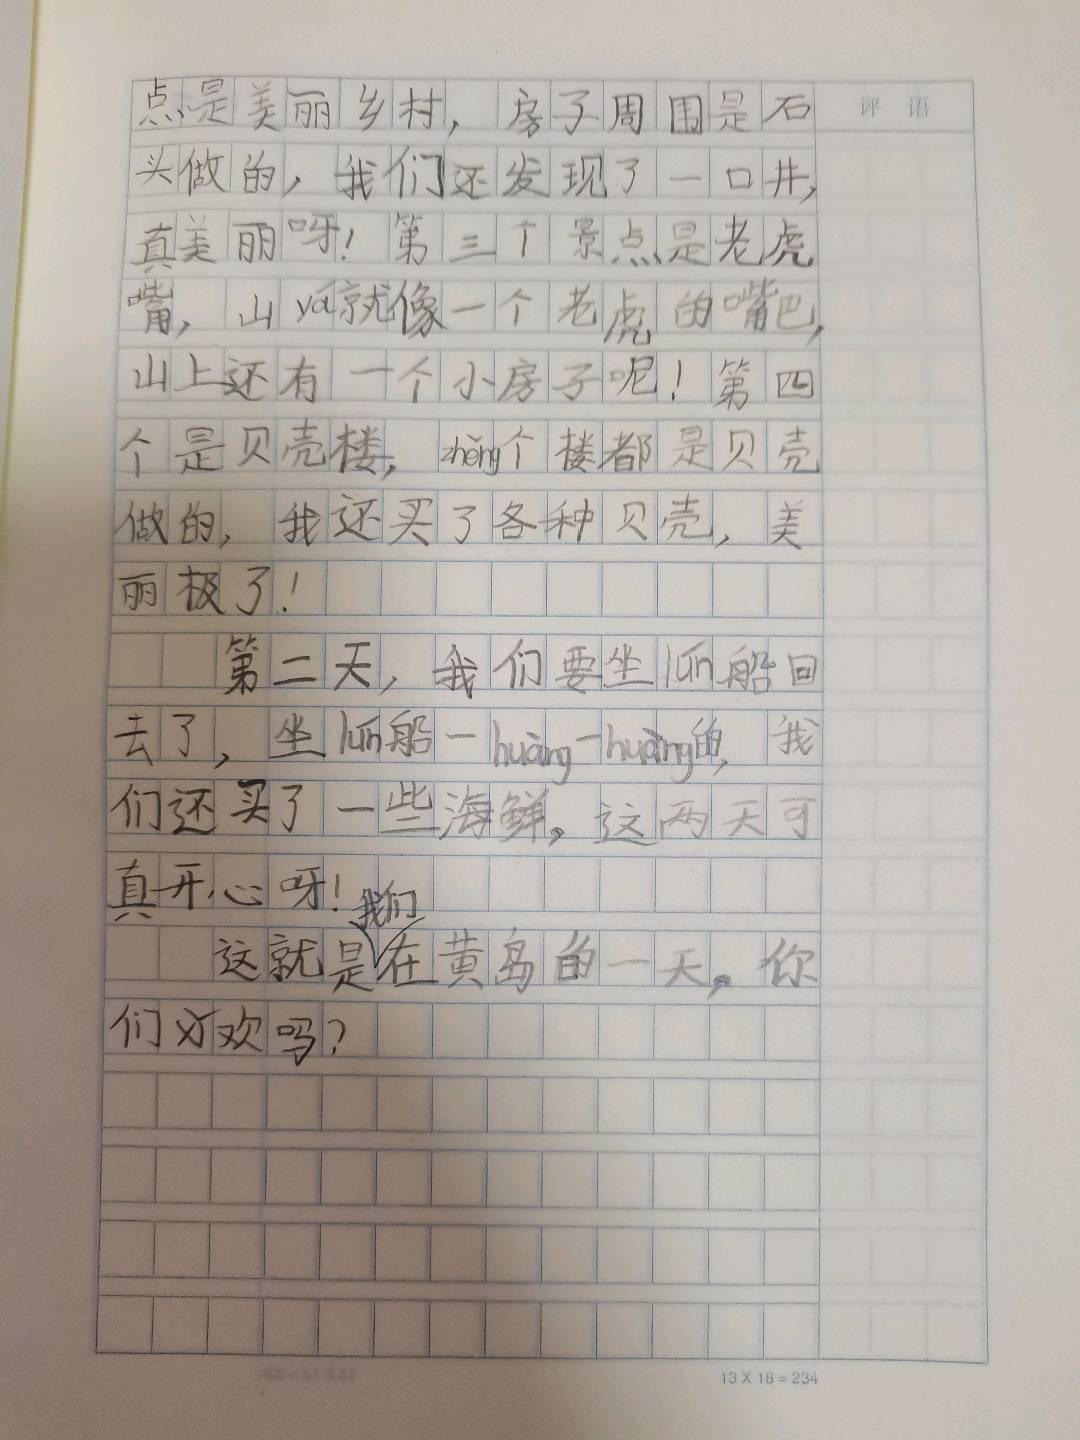 点是美丽乡村，房子周围是石
评 语
头做的，我们还发现了一口井，
真美丽呀！第三个景点是老虎
嘴，山yá就像一个老虎的嘴巴，
山上还有一个小房子呢！第四
个是贝壳楼，zhěng个楼都是贝壳
做的，我还买了各种贝壳，美
丽极了！
第二天，我们要坐lún船回
去了，坐lún船一huàng一huàng的，我
们还买了一些海鲜。这两天可
真开心呀！
这就是我们在黄岛的一天。你
们欢吗？
13 X 18 = 234